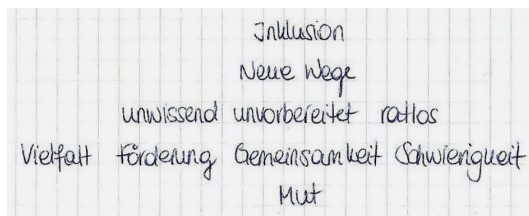 Inklusion
Neue Wege
unwissend unvorbereitet ratlos
Vielfalt Förderung Gemeinsamkeit Schwierigkeit
Mut